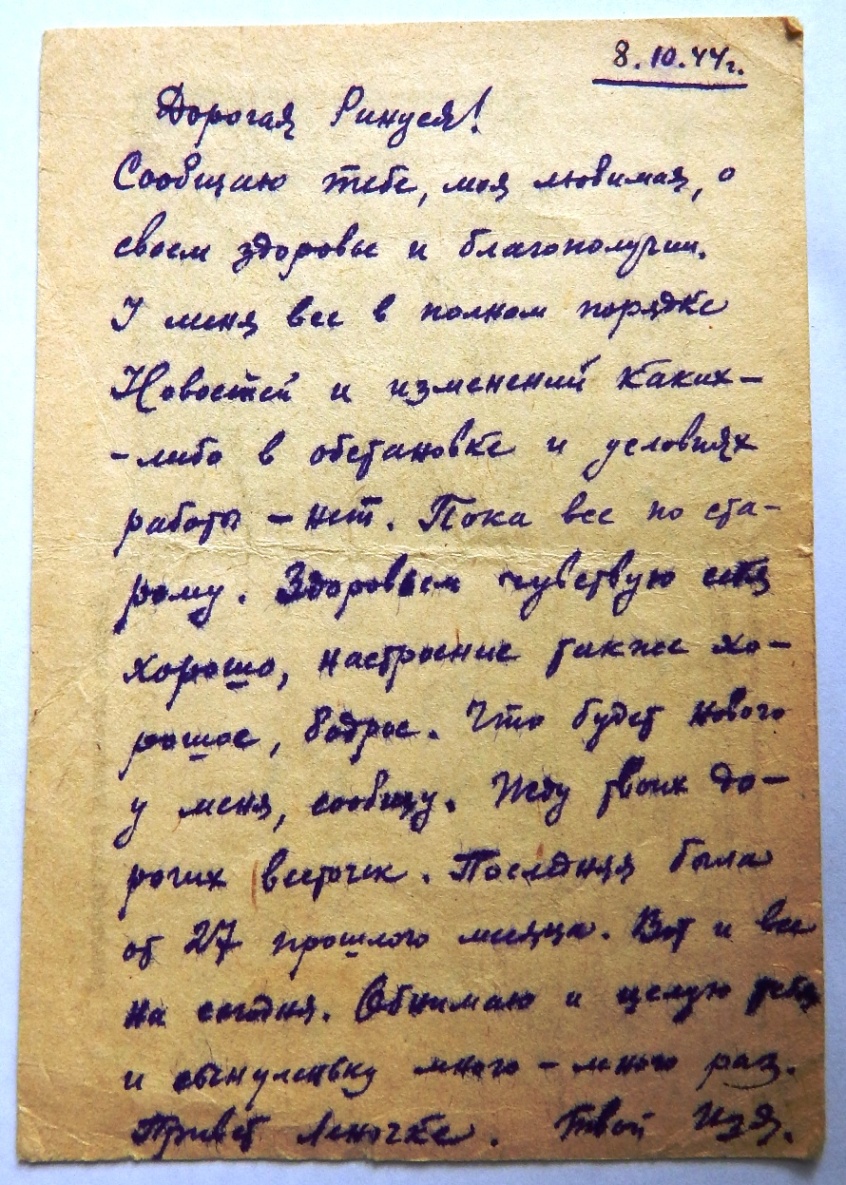 8.10.44г.
Дорогая Ринуся!
Сообщаю тебе, моя любимая, о
своем здоровье и благополучии.
У меня все в полном порядке
Новостей и изменений каких-
-либо в обстановке и условиях
работы - нет. Пока все по ста-
рому. Здоровьем чувствую себя
хорошо, настроение также хо-
рошее, бодрое. Что будет нового
у меня, сообщу. Жду твоих до-
рогих весточек. Последняя была
от 27 прошлого месяца. Вот и все
на сегодня. Обнимаю и целую тебя
и сынуленьку много-много раз.
Привет Леночке. Твой Изя.